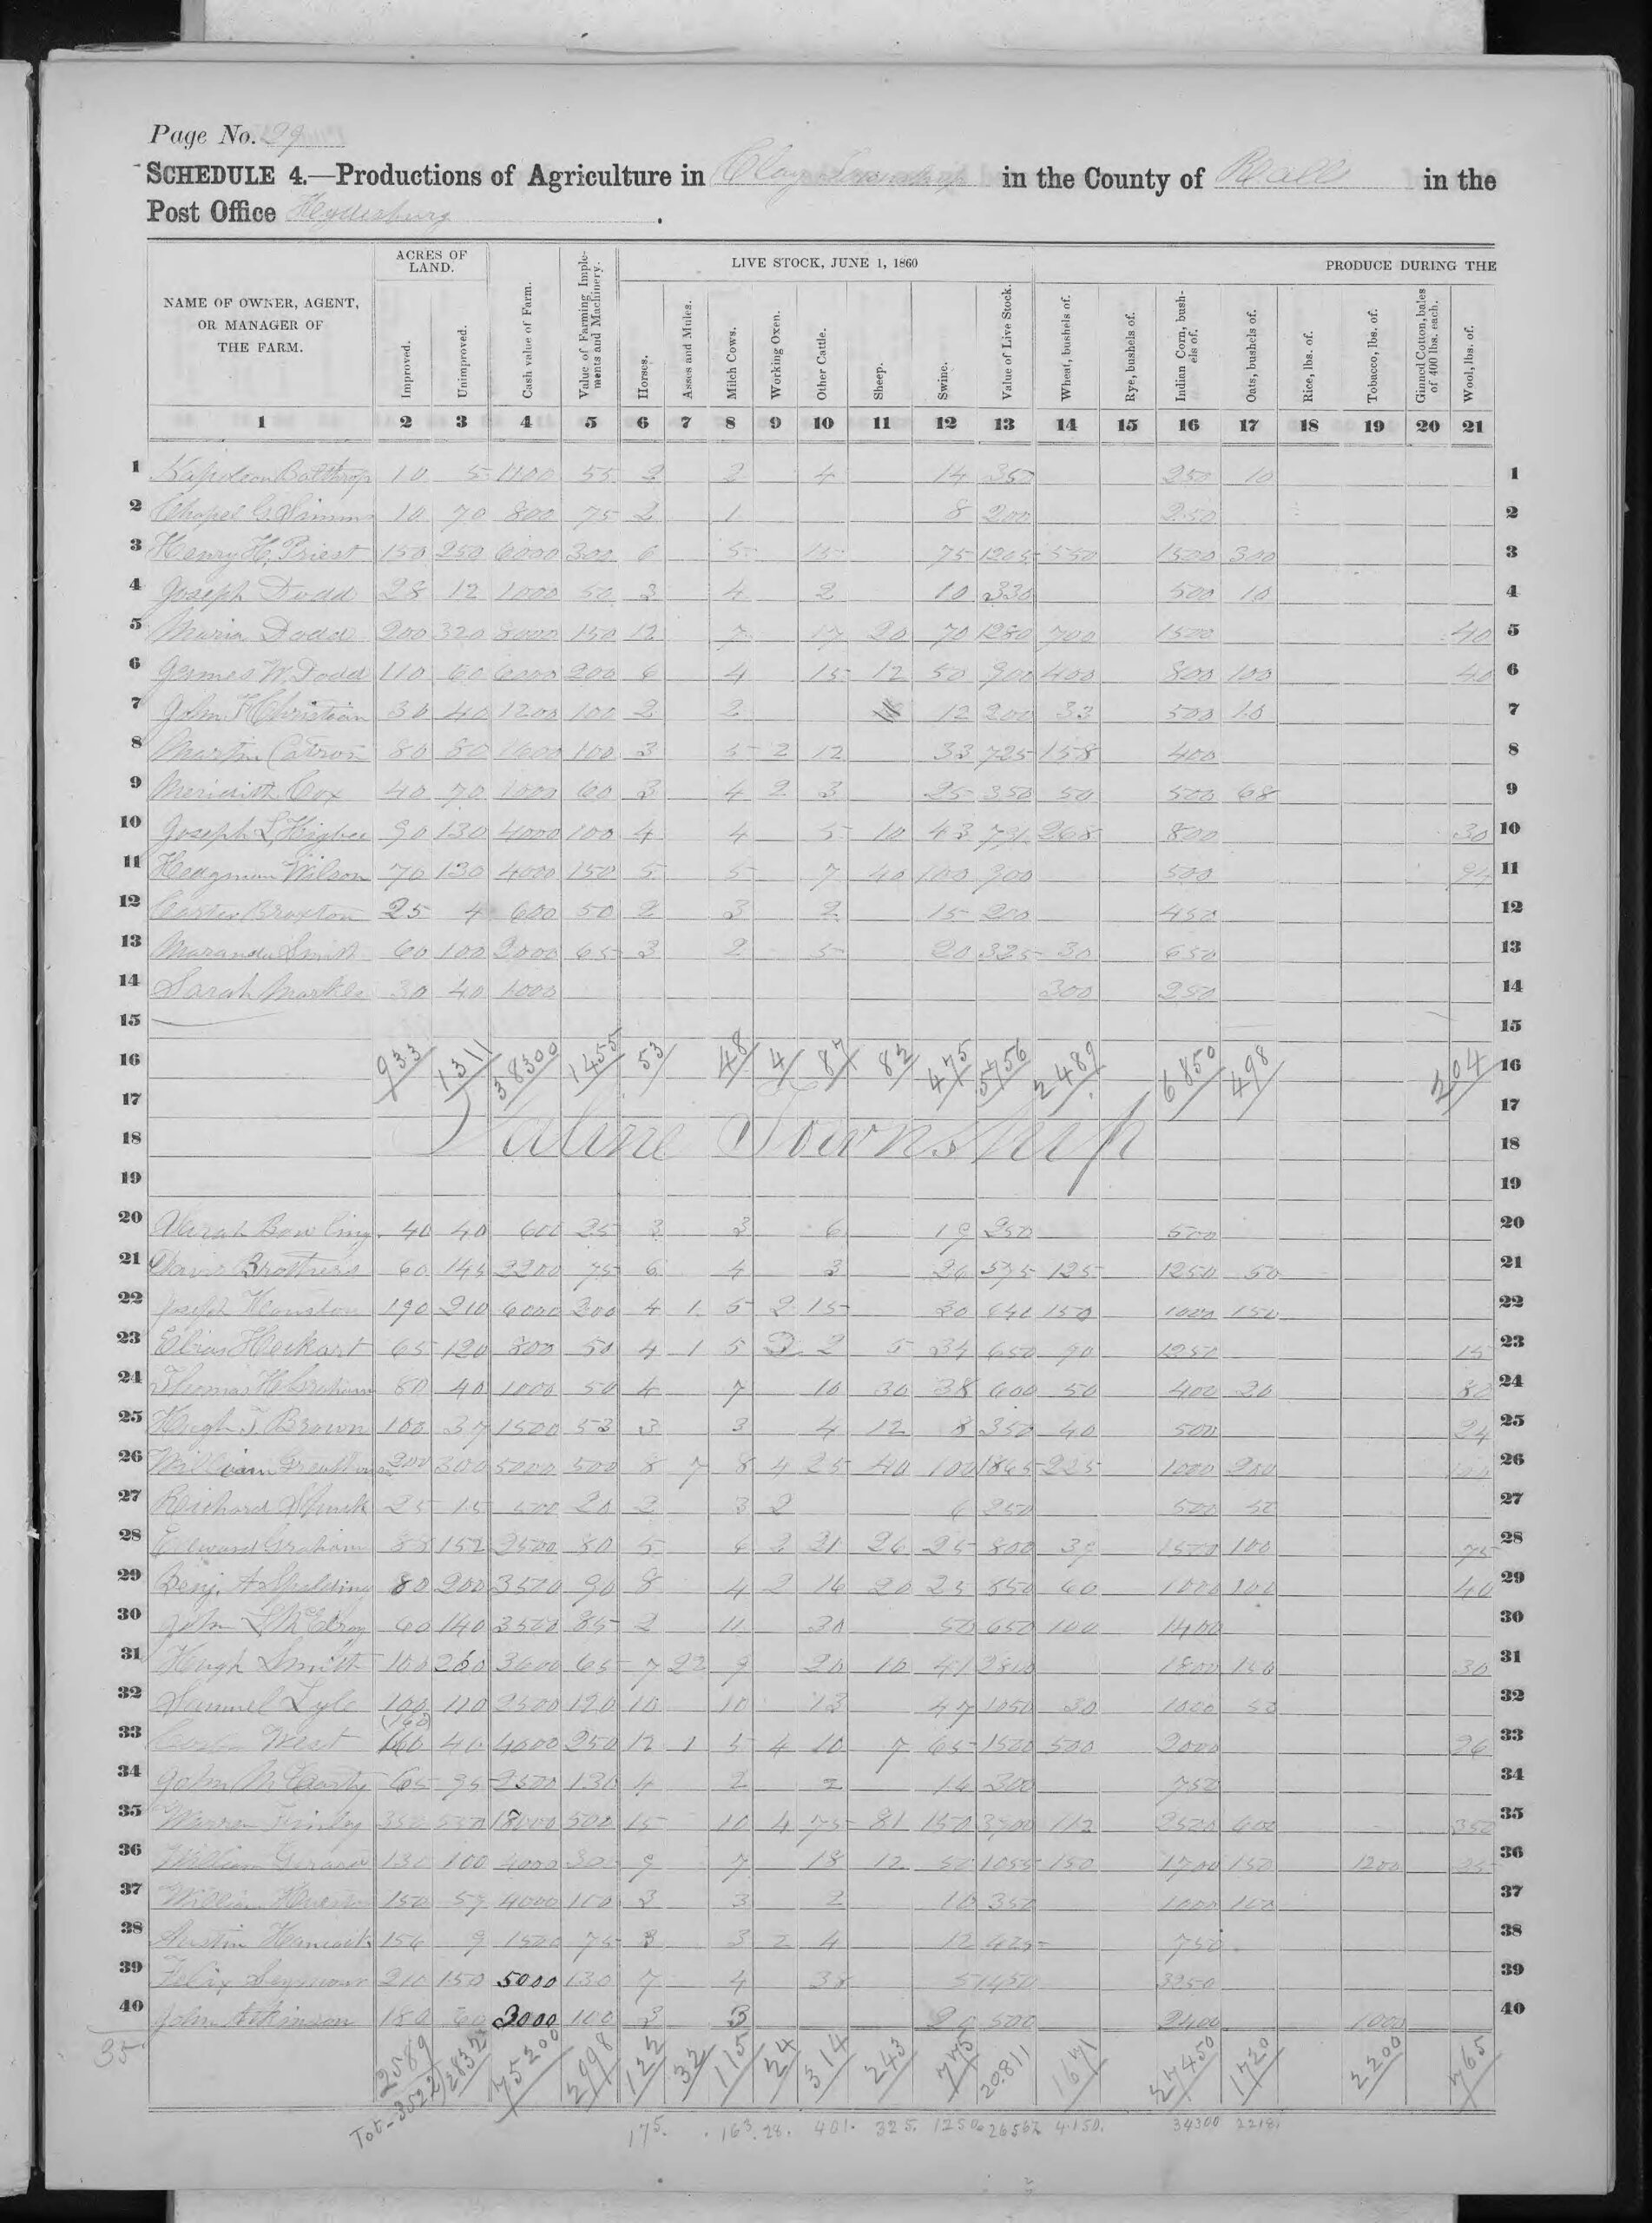 Page No. 29
SCHEDULE 4.—Productions of Agriculture in Clay Township in the County of Ralls in the
Post Office Hydesburg .
NAME OF OWNER, AGENT, OR MANAGER OF THE FARM. ACRES OF LAND. Improved. Unimproved. Cash value of Farm. Value of Farming Implements and Machinery. LIVE STOCK, JUNE 1, 1860 Horses. Asses and Mules. Milch Cows. Working Oxen. Other Cattle. Sheep. Swine. Value of Live Stock. PRODUCE DURING THE Wheat, bushels of. Rye, bushels of. Indian Corn, bushels of. Oats, bushels of. Rice, lbs. of. Tobacco, lbs. of. Ginned Cotton, bales of 400 lbs. each. Wool, lbs. of.
1 2 3 4 5 6 7 8 9 10 11 12 13 14 15 16 17 18 19 20 21
1 Napoleon 10 5 55 2 2 4 14 350 250 10 1
2 Chapel G. Simms 10 70 800 75 2 1 8 200 250 2
3 Henry H. Priest 150 250 6000 300 6 5 15 75 1205 550 1500 300 3
4 Joseph Dodd 28 12 1000 50 3 4 2 10 330 500 10 4
5 Maria Dodd 200 320 8000 150 12 7 17 20 70 1280 700 1500 40 5
6 James W. Dodd 110 60 6000 200 6 4 15 12 50 900 400 800 100 40 6
7 John H Christian 30 40 1200 100 2 2 12 200 33 500 10 7
8 Martin Catron 80 80 1600 100 3 5 2 12 33 725 158 400 8
9 Cox 40 70 1000 60 3 4 2 3 25 350 50 500 68 9
10 Joseph L. Higbee 90 130 4000 100 4 4 5 10 43 791 268 800 30 10
11 Wilson 70 130 4000 150 5 5 7 40 100 900 500 94 11
12 Carter Braxton 25 4 600 50 2 3 2 15 200 450 12
13 Smith 60 100 2000 65 3 2 5 20 325 30 650 13
14 Sarah 30 40 1000 300 250 14
15 15
16 933 1311 38300 1455 53 48 4 87 82 475 5756 2489 6850 498 204 16
17 17
18 Saline Township 18
19 19
20 Sarah Bowling 40 40 600 25 3 3 6 19 250 500 20
21 Brothers 60 145 2200 75 6 4 3 26 575 125 1250 50 21
22 Joseph Houston 190 210 6000 200 4 1 5 2 15 30 641 150 1000 150 22
23 Elias 65 120 800 50 4 1 5 2 5 34 650 90 1250 15 23
24 Thomas H. Graham 80 40 1000 50 4 7 10 30 38 600 50 400 20 80 24
25 Hugh T. Brown 100 37 1500 53 3 3 4 12 8 350 40 500 24 25
26 William 200 300 5000 500 8 7 8 4 25 40 100 1865 225 1000 200 26
27 Richard 25 15 500 20 2 3 2 6 250 500 50 27
28 Edward Graham 88 152 2500 80 5 6 2 21 26 25 800 39 1500 100 75 28
29 Benj. A. Spalding 80 200 3500 90 8 4 2 16 20 25 550 60 1000 100 40 29
30 John 60 140 3500 85 2 11 30 50 650 100 1400 30
31 Hugh Smith 100 260 3600 65 7 22 9 20 10 41 2800 1800 150 30 31
32 Samuel Lyle 100 110 2500 120 10 10 13 47 1050 30 1000 50 32
33 West (160) 160 40 4000 250 12 1 5 4 10 7 65 1500 500 2000 26 33
34 John McCarty 65 95 2500 130 4 2 2 14 300 750 34
35 Warren Finley 350 550 18000 500 15 10 4 75 81 150 3900 112 2500 600 350 35
36 William 130 100 4000 300 9 7 18 12 50 1055 150 1700 150 1200 25 36
37 William 150 57 4000 100 3 3 2 10 350 1000 100 37
38 Austin Hancock 156 9 1500 75 3 3 2 4 12 425 750 38
39 Felix Seymour 210 150 5000 130 7 4 38 3250 39
40 John Atkinson 180 60 3000 100 3 3 500 2400 1000 40
35 2589 2832 75200 2998 122 32 115 24 314 243 775 20.811 1671 27450 1720 2200 765
Tot-3522 175. 163. 28. 401. 325. 1250. 26567 4.150. 34300 2218.